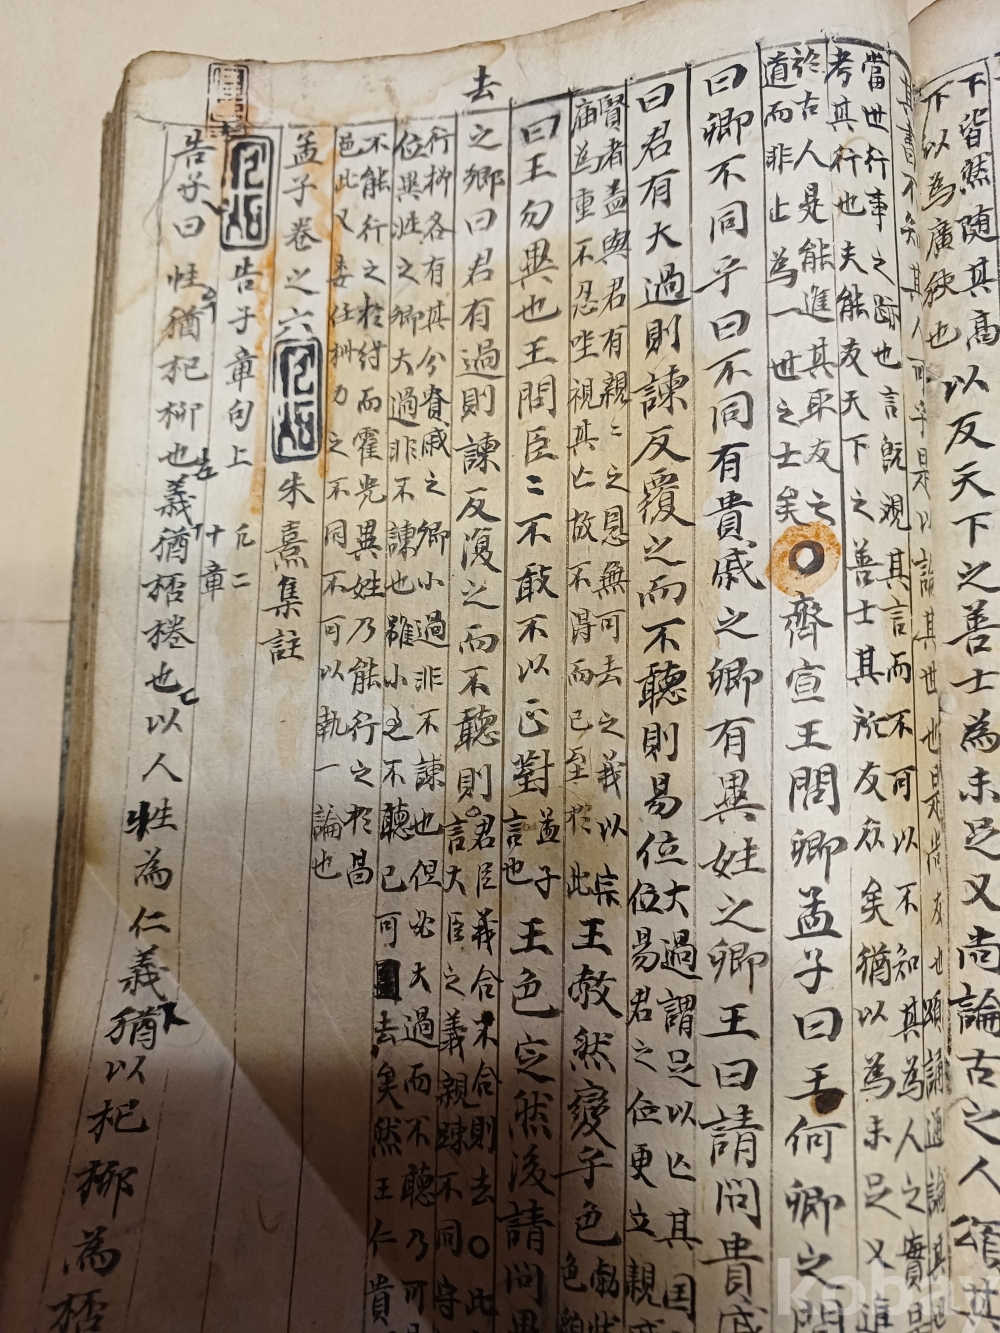 下皆然随其高以反天下之善士為未足又尚論古之人頌其
下以為廣狹也
其書不知其人可乎是以論其世也是尚友也頌誦通論其
當世行事之跡也言既觀其言而不可以不知其為人之實
考其行也夫能友天下之善士其所友众矣猶以為未足又進
於古人是能進其取友之
道而非止為一世之士矣
○齊宣王問卿孟子曰王何卿之問
曰卿不同乎曰不同有貴戚之卿有異姓之卿王曰請問貴戚
曰君有大過則諫反覆之而不聽則易位
大過謂足以亡其国
位易君之位更立親
賢者盖與君有親々之恩無可去之義以宗
庙為重不忍坐視其亡故不得而已至於此
王勃然變乎色
曰王勿異也王問臣々不敢不以正對
孟子
言也
王色定然後請問異
去
之卿曰君有過則諫反復之而不聽則
君臣義合不合則去○此
言大臣之義親踈不同守
行柳各有其分貴戚之卿小過非不諫也但必大過而不聽乃可
位異姓之卿大過非不諫也雖小過不聽已可去矣然王仁貴
不能行之於紂而霍光異姓乃能行之於昌
邑此又委任權力之不同不可以執一論也
孟子卷之六
朱熹集註
告子章句上
凡二
十章
告子曰性猶杞柳也義猶桮棬也以人性為仁義猶以杞柳為桮
kobay